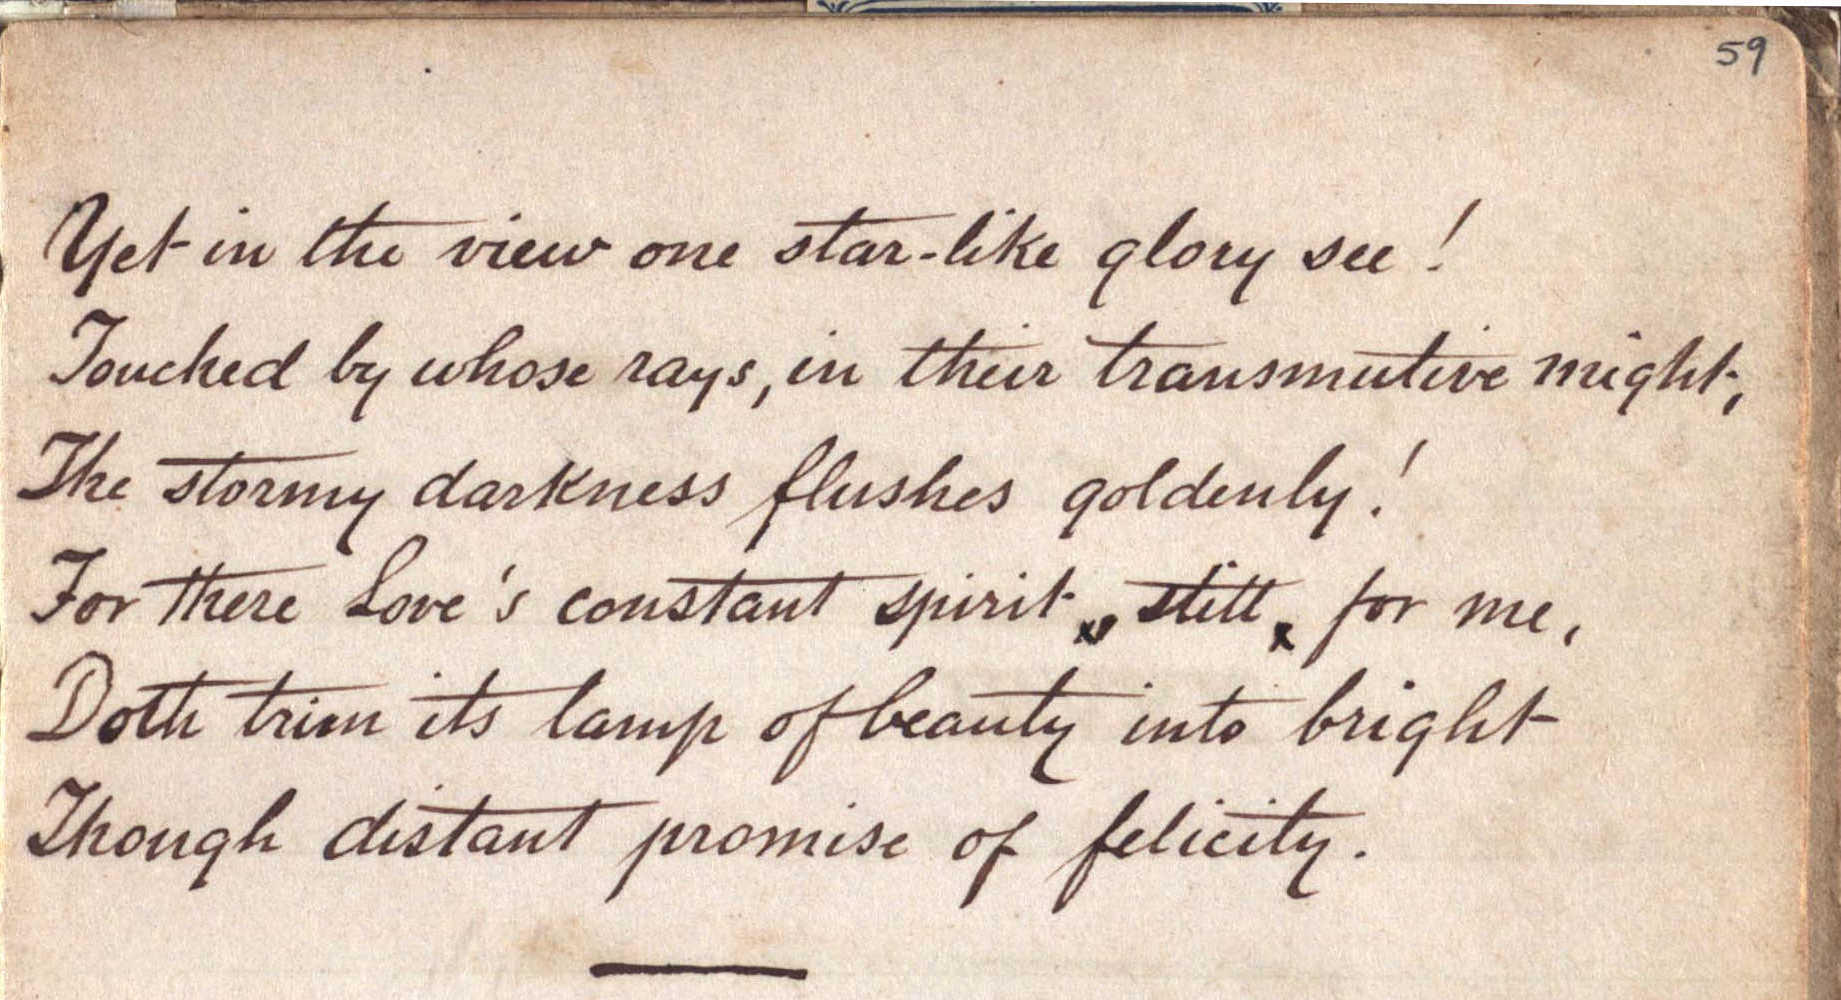 59
Yet in the view one star-like glory see!
Touched by whose rays, in their transmutive might,
The stormy darkness flushes goldenly!
For there Love's constant spirit, still, for me,
Doth trim its lamp of beauty into bright
Though distant promise of felicity.